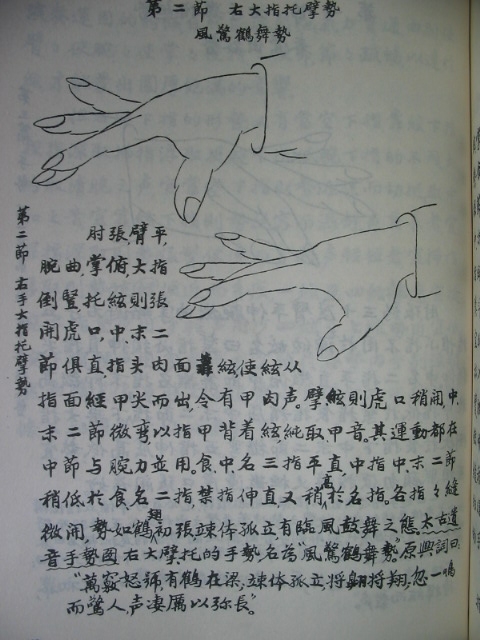 第二節 右大指托擘勢
風驚鶴舞勢
第二節 右手大指托擘勢
肘張,臂平,
腕曲,掌俯,大指
倒豎,托絃則張
開虎口,中、末二
節俱直,指头内面 絃使絃从
指面經甲尖而出,令有甲肉声。擘絃則虎口稍閉,中、
末二節微弯以指甲背着絃,純取甲音。其運動都在
中節与腕力並用。食、中、名三指平直,中指中、末二節
稍低於食、名二指,禁指伸直,又稍高於名指。各指々縫
微開,勢如鶴翅初張竦体孤立,有臨風鼓舞之态。太古道
音手勢图右大擘托的手勢名為“風驚鶴舞勢”。原興詞曰
“萬竅怒號,有鶴在梁,竦体孤立,将翺将翔,忽一鳴
而驚人,声凄厲以弥長”。